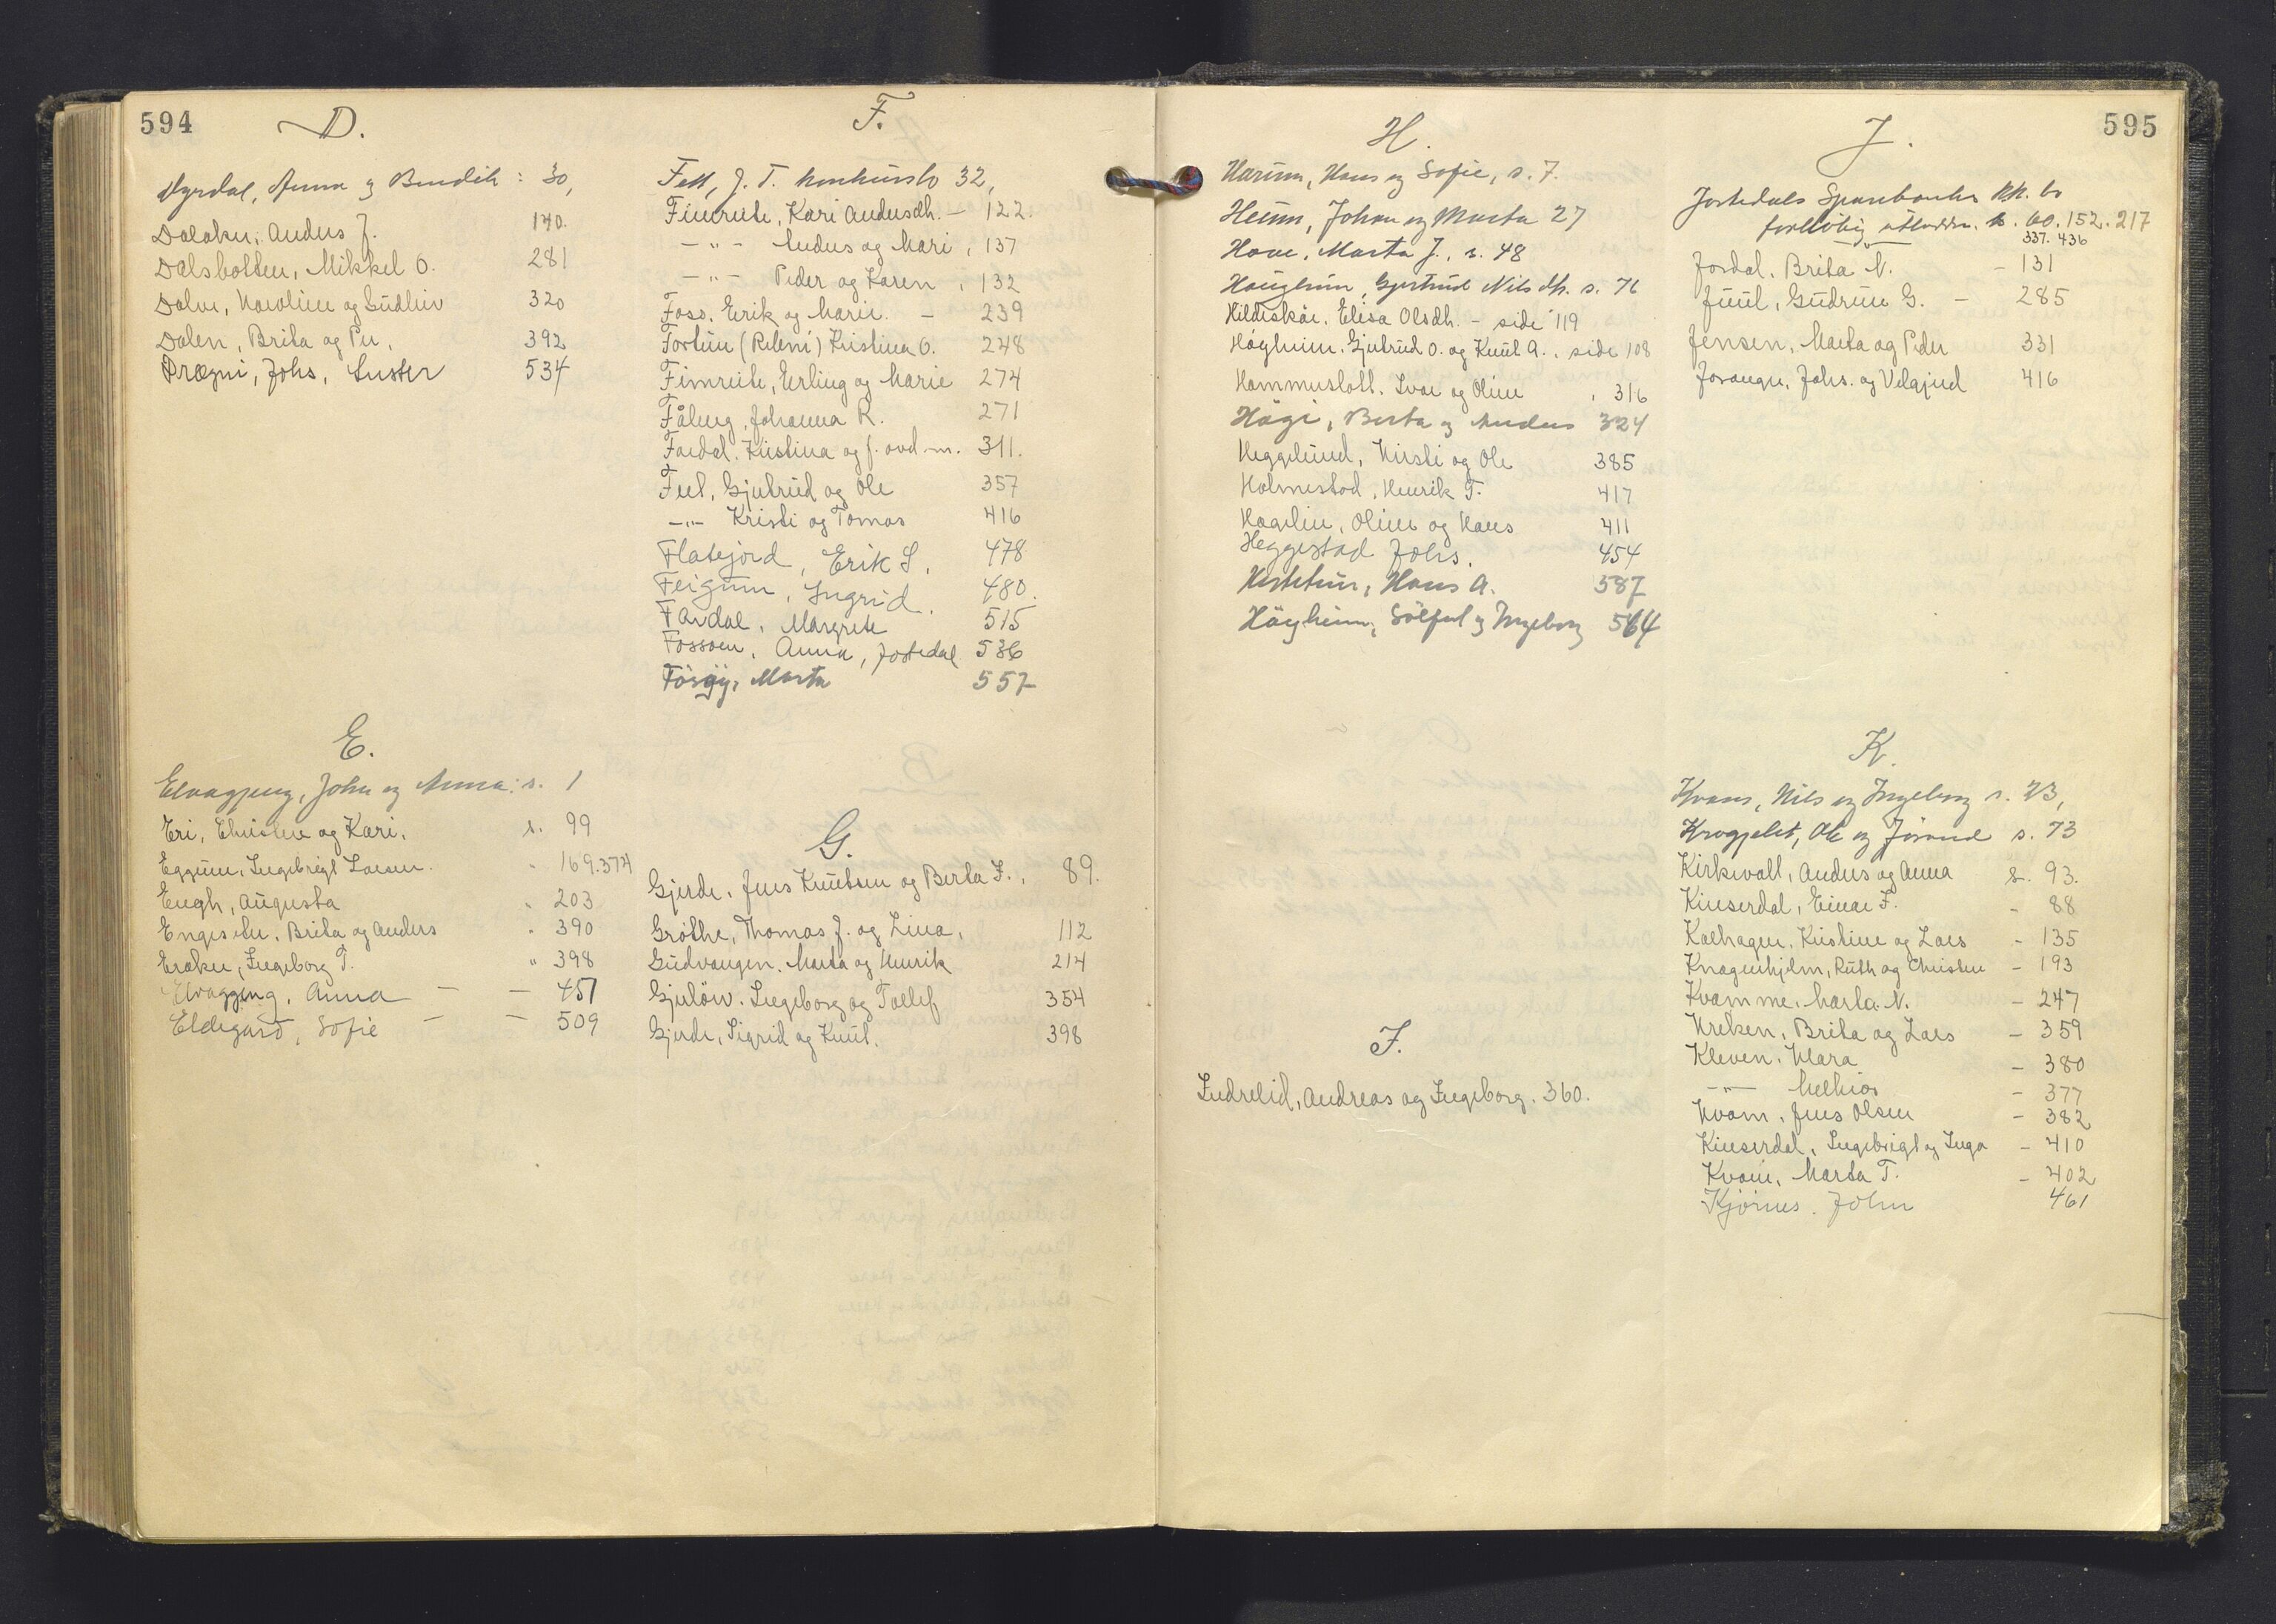 594
D.
Dyrdal, Anna og Bendik : 30,
Dalaker, Anders J. 140.
Dalsbotten, Mikkel O. 281
Dalen, Karoline og Gudleiv 320
Dalen, Brita og Per, 392
Drægni, Johs, Luster 534
E.
Elvagjeng, John og Anna: s. 1
Eri, Christen og Kari, s. 99
Eggum, Ingebrigt Larsen. " 169.374
Engh, Augusta " 203
Engeseter, Brita og Anders " 390
Eraker, Ingeborg T. " 398
Elvagjeng, Anna — — 451
Eldegard, Sofie — — 509
F.
Fett, J. T. konkursbo 32,
Fimreite, Kari Andersdh. – 122.
– " – Anders og Mari, 137
– " – Peder og Karen , 132
Foss, Erik og Marie. – 239
Fortun (Releni) Kristina O. 248
Fimreite, Erling og Marie 274
Fåberg, Johanna R. 271
Fardal, Kristina og f. avd. m. 311.
Feet, Gjertrud og Ole 357
– " – Kristi og Tomas 416
Flatejord, Erik S. 478
Feigum, Ingrid. 480.
Fardal, Margrete 515
Fossøen, Anna, Jostedal 536
Førøy, Marta 557
G.
Gjerde, Jens Knutsen og Berta F. , 89.
Grøthe, Thomas J. og Lina, 112
Gudvangen, Marta og Henrik 214
Gjerløw, Ingeborg og Tollef 354
Gjerde, Sigrid og Knut. 398
595
H.
Harum, Hans og Sofie, s. 7.
Heum, Johan og Marta 27
Hove, Marta J., s. 48
Haugheim, Gjertrud Nilsdh. s. 76
Hildeskår, Elisa Olsdh. – side 119
Høyheim, Gjertrud O. og Knut A., side 108
Hammersloll, Ivar og Oline , 316
Høgi, Berta og Anders 324
Heggelund, Kirsti og Ole 385
Holmestad, Henrik T. 417
Hagelin, Oline og Hans 411
Heggestad Johs. 454
Hestetun, Hans A. 587
Høyheim, Sølfest og Ingeborg 564
I.
Indrelid, Andreas og Ingeborg. 360.
J.
Jostedals Sparebanks kk. bo
foreløbig utlodn. s. 60. 152. 217
337. 436
Jordal, Brita N. – 131
Juul, Gudrun G. – 285
Jensen, Marta og Peder 331
Jøranger, Johs. og Velgjerd 416
K.
Kvam, Nils og Ingeborg s. 23,
Krogjelet, Ole og Jorand s. 73
Kirkevoll, Anders og Anna s. 93.
Kinserdal, Einar F. – 88
Kalhagen, Kristine og Lars – 135
Knagenhjelm, Ruth og Christen – 193
Kvamme, Marta N. – 247
Kreken, Brita og Lars – 359
Kleven, Klara – 380
– " – Melkior – 377
Kvam, Jens Olsen – 382
Kinserdal, Ingebrigt og Inga – 410
Kvam, Marta T. – 402
Kjørnes, John 461